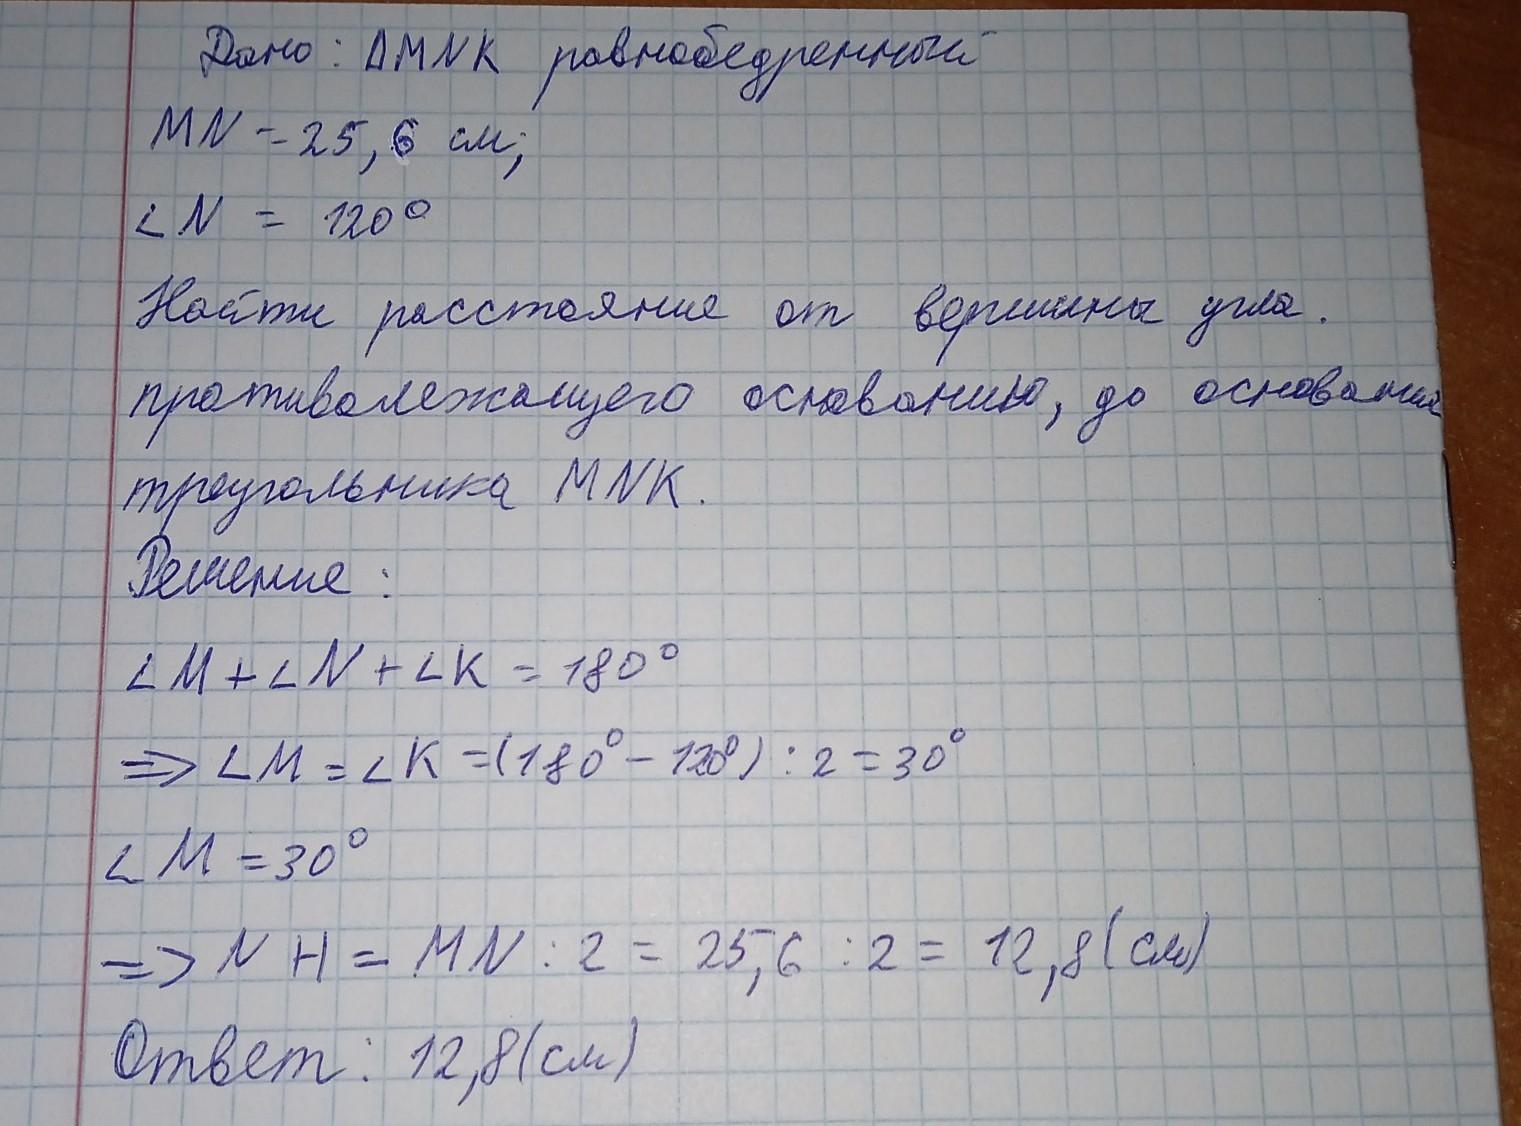 Дано: ΔMNK равнобедренный
MN = 25,6 см;
∠N = 120°
Найти расстояние от вершины угла.
противолежащего основанию, до основания
треугольника MNK.
Решение:
∠M+∠N+∠K = 180°
=> ∠M = ∠K =(180° - 120°) : 2 = 30°
∠M = 30°
=> NH = MN : 2 = 25,6 : 2 = 12,8 (см)
Ответ: 12,8 (см)